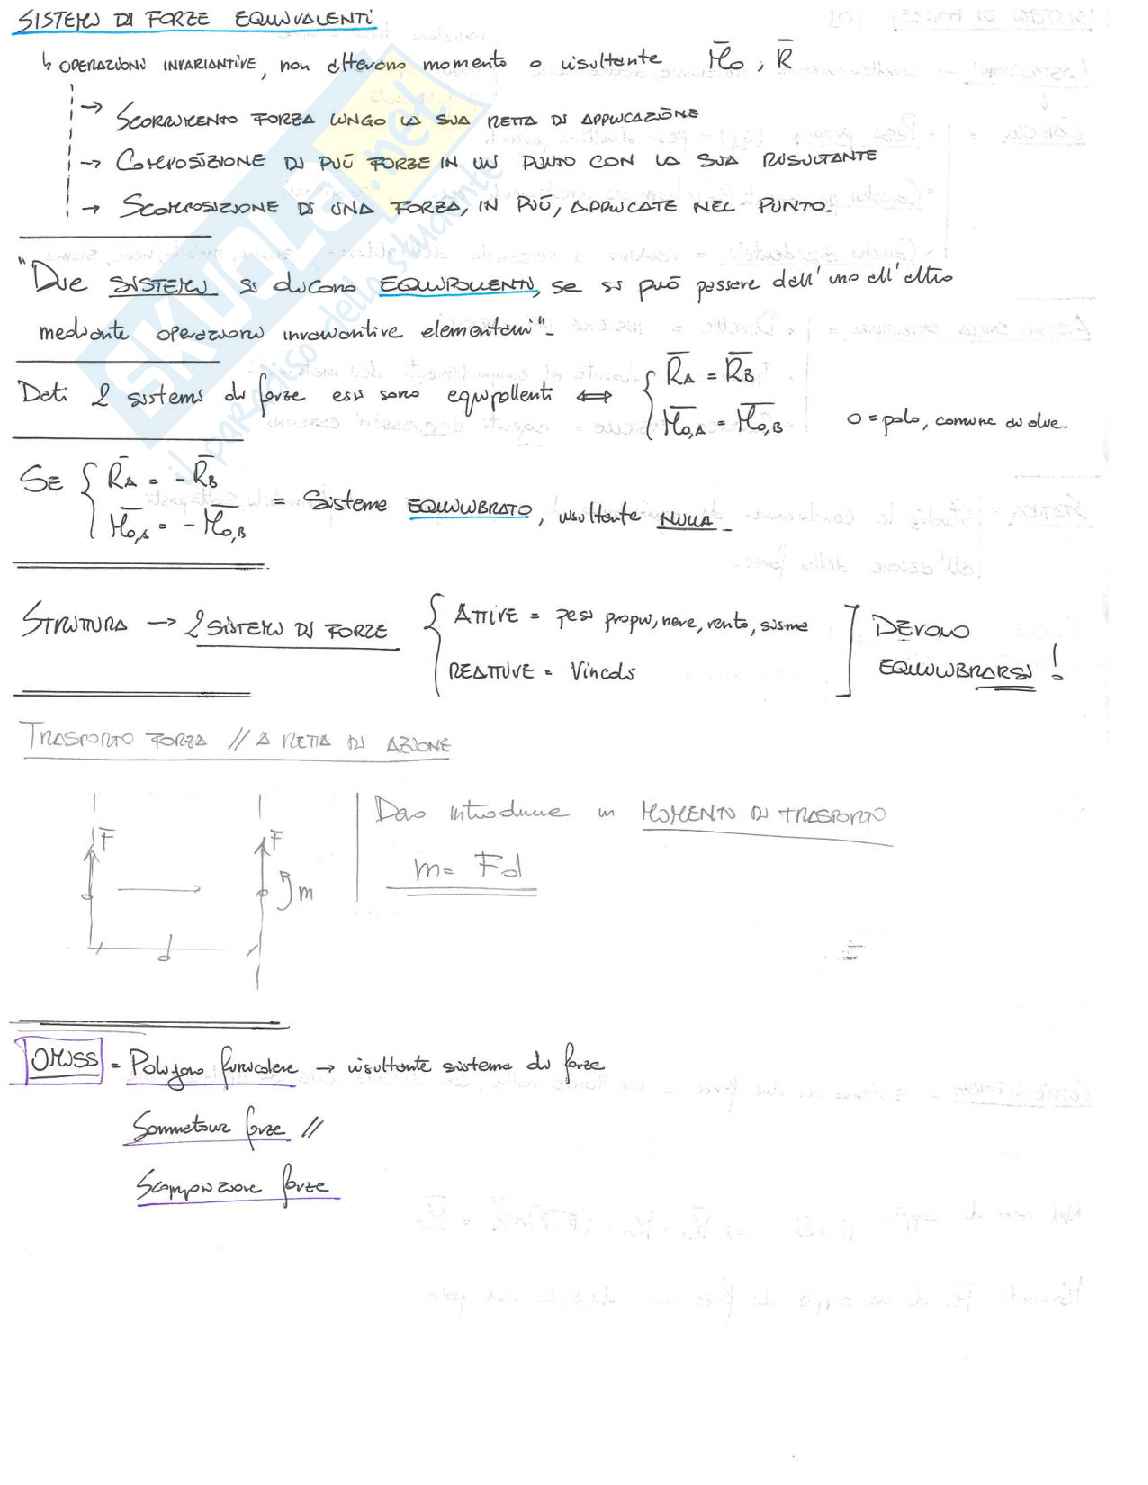 SISTEMI DI FORZE EQUIVALENTI
↳ OPERAZIONI INVARIANTIVE, non alterano momento o risultante M̅o, R̅
→ SCORRIMENTO FORZA LUNGO LA SUA RETTA DI APPLICAZIONE
→ COMPOSIZIONE DI PIÙ FORZE IN UN PUNTO CON LA SUA RISULTANTE
→ SCOMPOSIZIONE DI UNA FORZA, IN PIÙ, APPLICATE NEL PUNTO.
"Due SISTEMI si dicono EQUIPOLLENTI, se si può passare dall'uno all'altro
mediante operazioni invariantive elementari".
Dati 2 sistemi di forze essi sono equipollenti ⟺ { R̅A = R̅B
M̅o,A = M̅o,B O = polo, comune ai due.
SE { R̅A = - R̅B
M̅o,A = - M̅o,B = Sistema EQUILIBRATO, risultante NULLA.
STRUTTURA → 2 SISTEMI DI FORZE { ATTIVE = pesi propri, neve, vento, sisma
REATTIVE = Vincoli ] DEVONO
EQUILIBRARSI!
TRASPORTO FORZA // A RETTA DI AZIONE
Devo introdurre un MOMENTO DI TRASPORTO
F̅ F̅ m
m = Fd
d
OMISS = Poligono funicolare → risultante sistema di forze
Sommatoria forze //
Scomposizione forze
SKUOLA.net
il paradiso dello studente